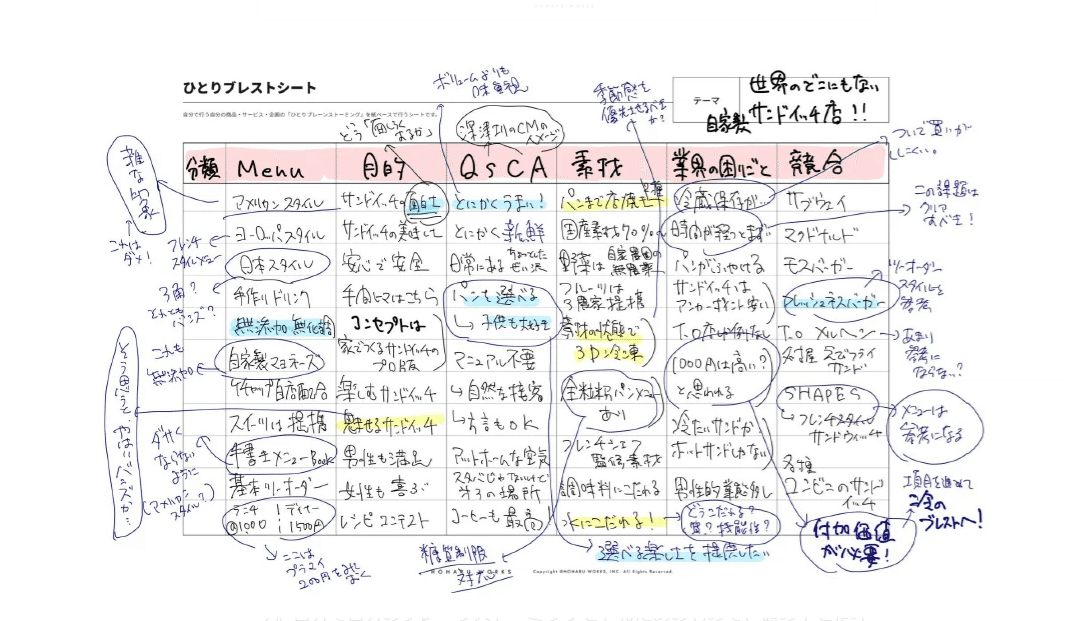 ひとりブレストシート
自分で行う自分の商品・サービス・企画の「ひとりブレーンストーミング」を紙ベースで行うシートです。
テーマ
世界のどこにもない
自家製
サンドイッチ店!!
ボリュームよりも
味重視
季節感も
優先させるべき
か?
深津絵里のCMの
イメージ
ついで買いが
しにくい。
雑な印象
これは
ダメ!
分類 Menu 目的 QSCA 素材 業界の困りごと 競合
アメリカンスタイル
サンドイッチの
とにかくうまい!
パンまで店焼き
冷蔵保存が…
サブウェイ
ヨーロッパスタイル
サンドイッチの美味しさ
とにかく新鮮
国産素材70%
時間が経つとまずい
マクドナルド
日本スタイル
安心で安全
日常にある
ちょっとした
ぜい沢
野菜は
自家農園の
無農薬
パンがふやける
モスバーガー
手作りドリンク
パンを選べる
フルーツは
農家提携
サンドイッチは
アンカーポイント安い
フレッシュネスバーガー
無添加 無化調
コンセプトは
家でつくるサンドイッチの
プロ版
↳子供も大好き
素材の状態で
3D冷凍
メルヘン
自家製マヨネーズ
マニュアル不要
1000円は高い?
と思われる
ケチャップ自店配合
楽しむサンドイッチ
↳自然な接客
全粒粉パンメニュー
あり
SHAPES
↳フレンチスタイル
サンドウィッチ
スイーツは提携
魅せるサンドイッチ
↳方言もOK
冷たいサンドか
ホットサンドしかない
手書きメニューBook
男性も満足
アットホームな空気
フレンチシェフ
監修素材
各種
コンビニのサンド
イッチ
基本ツーオーダー
女性も喜ぶ
スタバじゃないけど
第3の場所
調味料にこだわる
男性的業態多し
ランチ
@1000
ディナー
1500円
レシピコンテスト
コーヒーも最高!
水にこだわる!
どうこだわる?
質?機能性?
付加価値
が必要!
フレンチ
スタイルメニュー
3角?
これも
無添加
ダサく
ならない
ように
(アメリカン
スタイル?)
この課題は
クリア
すべき!
ツーオーダー
スタイルを
参考
あまり
参考に
ならない?
メニューは
参考になる
項目を進めて
ブレストへ!
ここは
プライス
糖質制限
対応
選べる楽しさを提供したい
NOHARU WORKS
Copyright ©NOHARU WORKS, INC. All Rights Reserved.